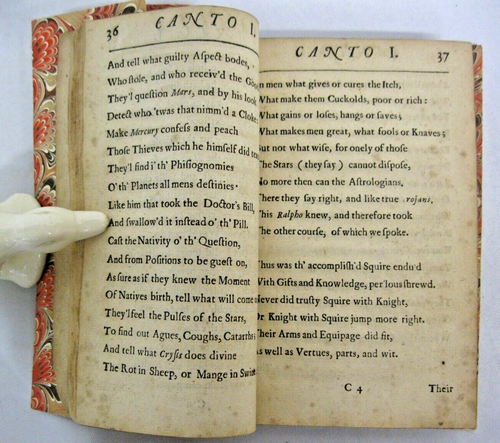 36 CANTO I.
And tell what guilty Aſpect bodes,
Who ſtole, and who receiv'd the
They'l queſtion Mars, and by his look
Detect who 'twas that nimm'd a
Make Mercury confeſs and peach
Thoſe Thieves which he himſelf did
They'l find i' th' Phiſiognomies
O' th' Planets all mens deſtinies
Like him that took the Doctor's Bill,
And ſwallow'd it inſtead o' th' Pill.
Caſt the Nativity o' th' Queſtion,
And from Poſitions to be gueſt on,
As ſure as if they knew the Moment
Of Natives birth, tell what will come
They'l feel the Pulſes of the Stars,
To find out Agues, Coughs, Catarrhs
And tell what Cryſis does divine
The Rot in Sheep, or Mange in
CANTO I. 37
men what gives or cures the Itch,
What make them Cuckolds, poor or rich:
What gains or loſes, hangs or ſaves;
What makes men great, what fools or Knaves;
But not what wiſe, for onely of thoſe
The Stars (they ſay) cannot diſpoſe,
No more then can the Aſtrologians.
There they ſay right, and like true rojans.
This Ralpho knew, and therefore took
The other courſe, of which we ſpoke.
Thus was th' accompliſh'd Squire endu'd
With Gifts and Knowledge, per'lous ſhrewd.
Never did truſty Squire with Knight,
Or Knight with Squire jump more right.
Their Arms and Equipage did fit,
As well as Vertues, parts, and wit.
C 4 Their